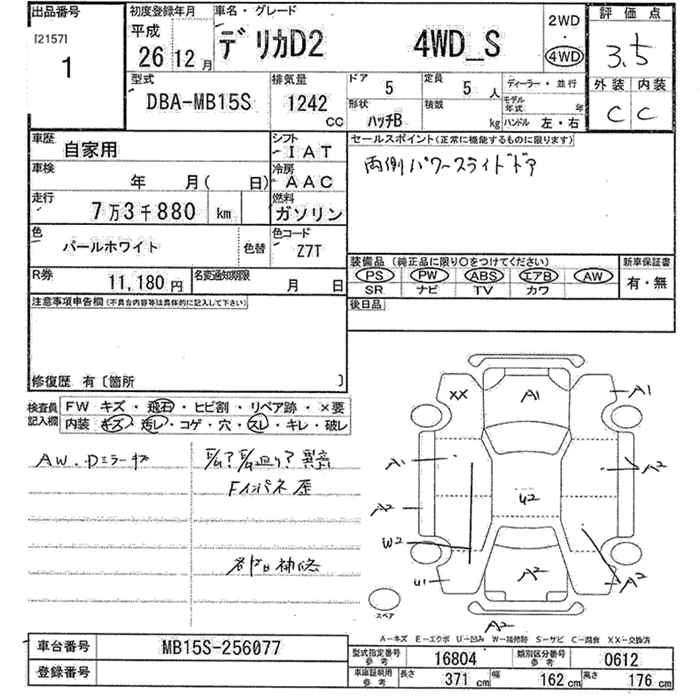 出品番号
[2157]
1
初度登録年月
平成
26 12 月
車名・グレード
デリカD2 4WD_S
2WD
・
4WD
評価点
3.5
外装 内装
C C
型式
DBA-MB15S
排気量
1242 cc
ドア
5
定員
5 人
形状
ハッチB
積載
kg
ディーラー・並行
モデル年式 年
ハンドル 左・右
車歴
自家用
シフト
IAT
車検
年 月( 日)
冷房
AAC
走行
7万3千880 km
燃料
ガソリン
色
パールホワイト
色替
色コード
Z7T
R券
11,180 円
名変通知期限
月 日
セールスポイント(正常に機能するものに限ります)
両側パワースライドドア
装備品(純正品に限り○をつけてください)
PS PW ABS エアB AW
SR ナビ TV カワ
新車保証書
有・無
後日品
注意事項申告欄(不具合内容等は具体的に記入して下さい)
修復歴 有〔箇所 〕
検査員記入欄
FW キズ・飛石・ヒビ割・リペア跡・×要
内装 キズ・汚レ・コゲ・穴・スレ・キレ・破レ
AW.Dミラーキズ
Fインパネ歪
各部補修
XX A1 A1
A1 A2
A2 U2
W2
U1 A2 A2
スペア
A2
A-キズ E-エクボ U-凹み W-補修跡 S-サビ C-腐食 XX-交換済
車台番号
MB15S-256077
登録番号
型式指定番号 参考
16804
類別区分番号 参考
0612
車庫証明用 参考
長さ 371 cm 幅 162 cm 高さ 176 cm